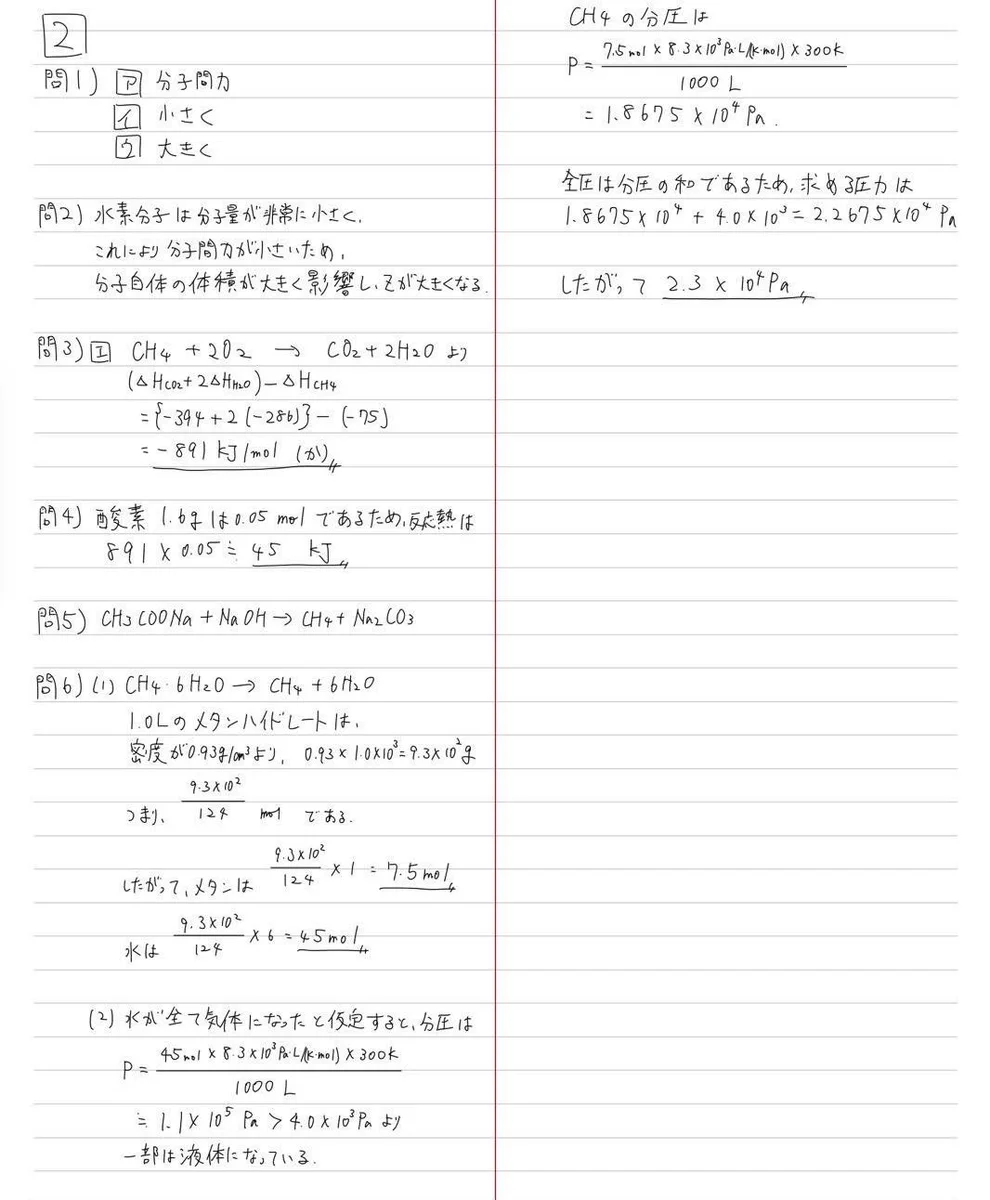 2
問1) ア 分子間力
イ 小さく
ウ 大きく
問2) 水素分子は分子量が非常に小さく,
これにより分子間力が小さいため,
分子自体の体積が大きく影響し, Zが大きくなる.
問3) エ CH4 + 2O2 → CO2 + 2H2O より
(ΔHCO2 + 2ΔHH2O) - ΔHCH4
= {-394 + 2(-286)} - (-75)
= -891 kJ/mol (か)
問4) 酸素 1.6g は 0.05 mol であるため, 反応熱は
891 × 0.05 ≒ 45 kJ
問5) CH3COONa + NaOH → CH4 + Na2CO3
問6) (1) CH4・6H2O → CH4 + 6H2O
1.0Lのメタンハイドレートは,
密度が0.93g/cm³より, 0.93 × 1.0×10³ = 9.3×10²g
つまり, 9.3×10²/124 mol である.
したがって, メタンは 9.3×10²/124 × 1 = 7.5 mol
水は 9.3×10²/124 × 6 = 45 mol
(2) 水が全て気体になったと仮定すると, 分圧は
P = 45mol × 8.3×10³Pa・L/(K・mol) × 300K / 1000 L
≒ 1.1×10⁵ Pa > 4.0×10³Pa より
一部は液体になっている.
CH4の分圧は
P = 7.5mol × 8.3×10³Pa・L/(K・mol) × 300K / 1000 L
= 1.8675 × 10⁴ Pa.
全圧は分圧の和であるため, 求める圧力は
1.8675×10⁴ + 4.0×10³ = 2.2675×10⁴ Pa
したがって 2.3 × 10⁴ Pa